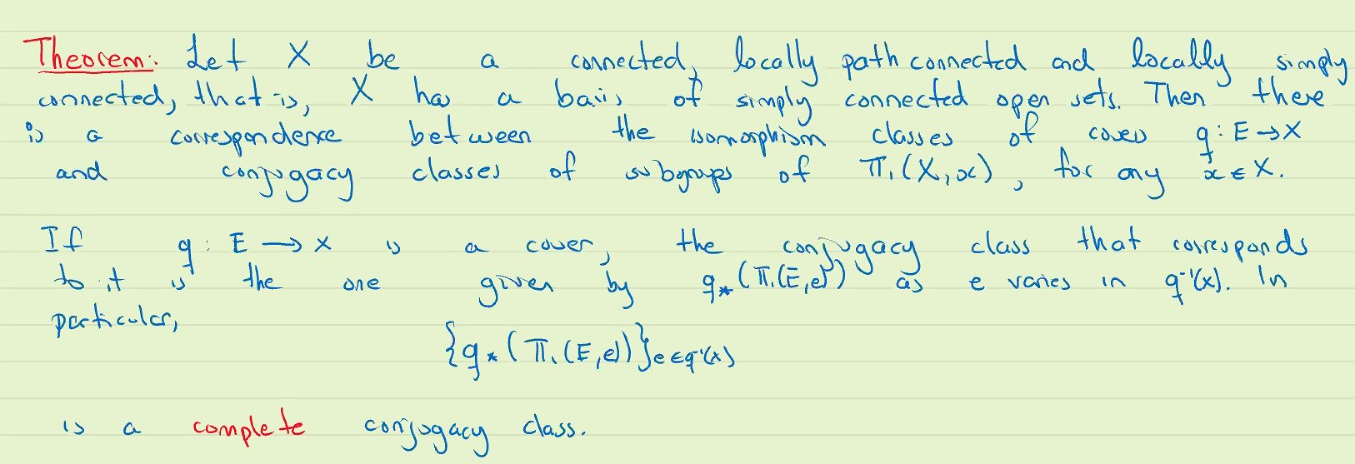 Theorem: Let X be a connected, locally path connected and locally simply
connected, that is, X has a basis of simply connected open sets. Then there
is a correspondence between the isomorphism classes of covers q: E → X
and conjugacy classes of subgroups of π₁(X, x), for any x ∈ X.
If q: E → X is a cover, the conjugacy class that corresponds
to it is the one given by q⁎(π₁(E,e)) as e varies in q⁻¹(x). In
particular,
{q⁎(π₁(E,e))}e∈q⁻¹(x)
is a complete conjugacy class.